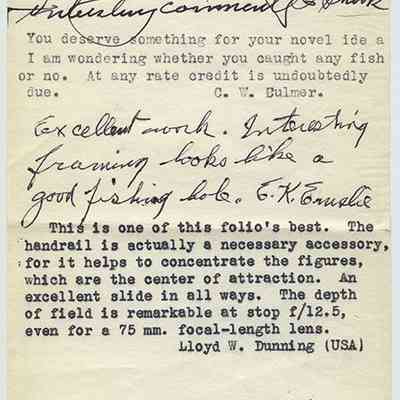 Interesting comment
You deserve something for your novel ide a
I am wondering whether you caught any fish
or no. At any rate credit is undoubtedly
due. C. W. Culmer.
Excellent work. Interesting
framing looks like a
good fishing hole. E.K. Emslie
This is one of this folio's best. The
handrail is actually a necessary accessory,
for it helps to concentrate the figures,
which are the center of attraction. An
excellent slide in all ways. The depth
of field is remarkable at stop f/12.5,
even for a 75 mm. focal-length lens.
Lloyd W. Dunning (USA)